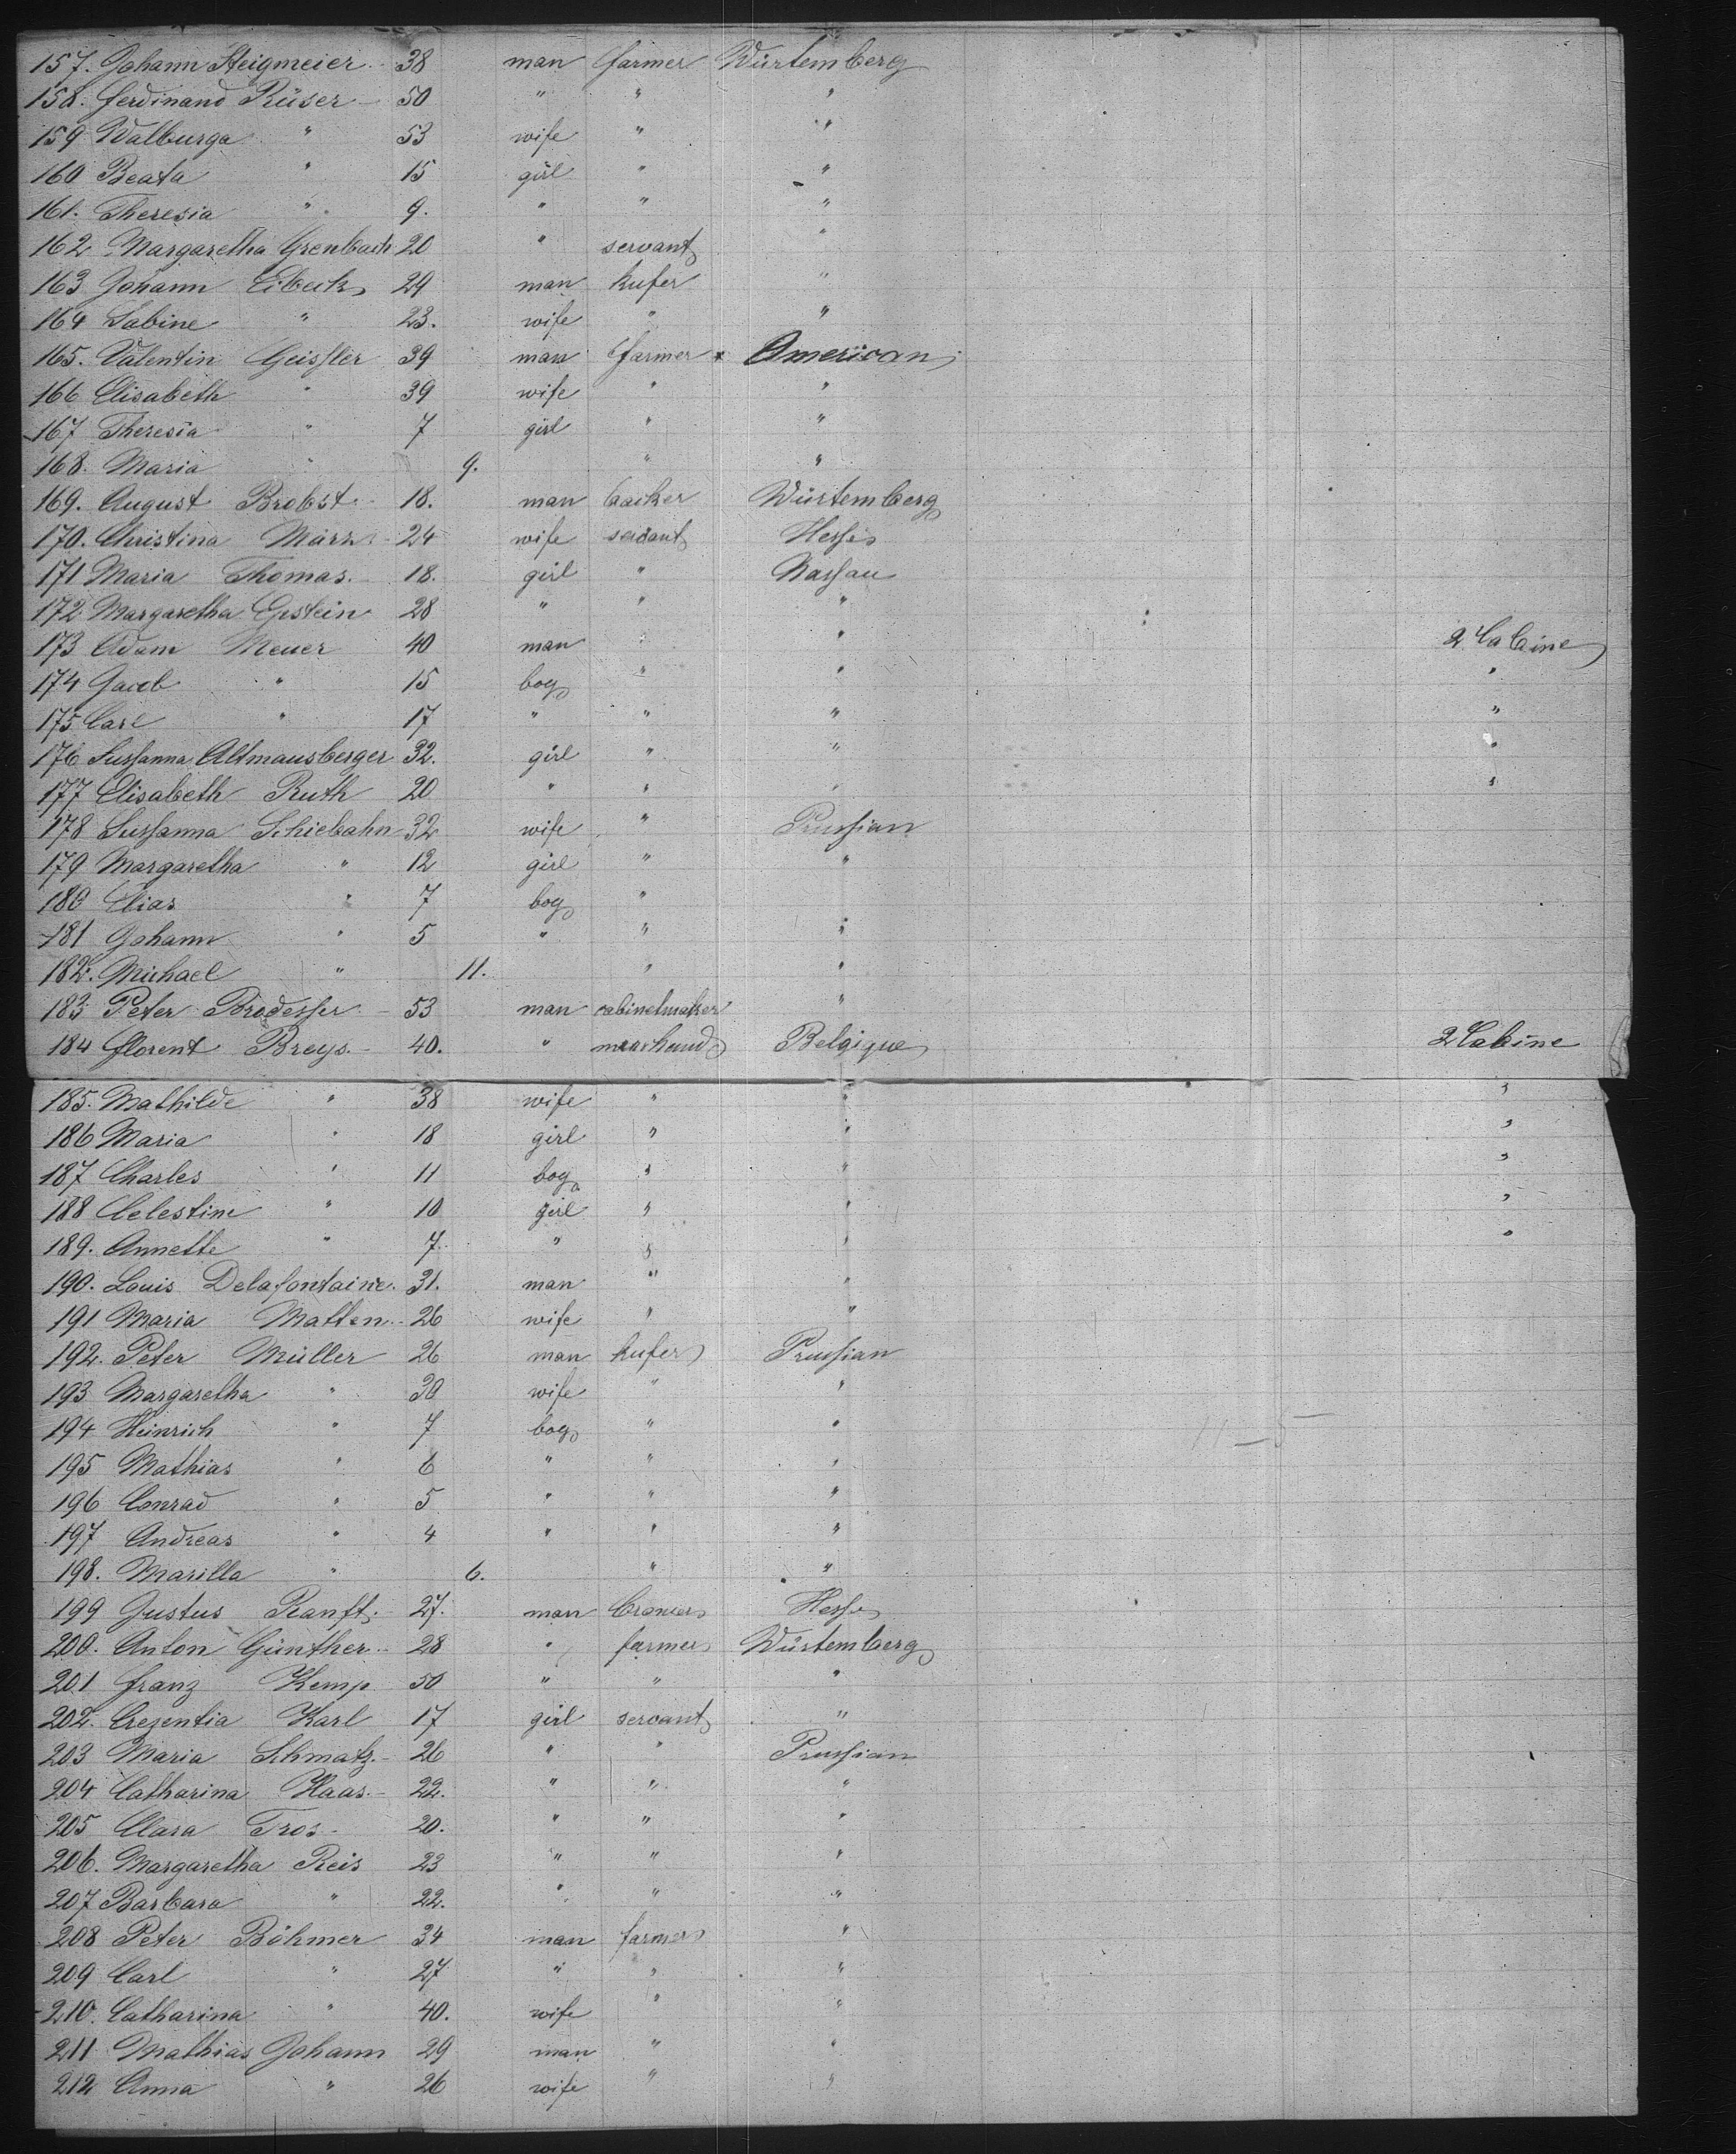 157. Johann Steigmeier 38 man farmer Würtemberg
158. Ferdinand Rüser 50 " " "
159 Walburga " 53 wife " "
160 Beata " 15 girl " "
161. Theresia " 9. " " "
162 Margaretha Grenbach 20 " servant "
163 Johann Eibeck 29 man kufer "
164 Sabine " 23. wife " "
165. Valentin Geissler 39 man farmer x American
166 Elisabeth " 39 wife " "
167 Theresia " 7 girl " "
168. Maria " 9. " "
169. August Brobst 18. man backer Würtemberg
170. Christina März 24 wife servant Hesse
171 Maria Thomas. 18. girl " Nassau
172. Margaretha Epstein 28 " " "
173 Adam Meuer 40 man " " 2 Cabine
174 Jacob " 15 boy " " "
175 Carl " 17 " " " "
176 Sussanna Altmausberger 32. girl " " "
177 Elisabeth Ruth 20 " " " "
178 Sussanna Schiebahn 32 wife " Prussian
179 Margaretha " 12 girl " "
180 Elias " 7 boy "
181 Johann " 5 " " "
182. Michael " 11. " "
183 Peter Brodesser 53 man cabinetmaker "
184 Florent Breys. 40. " marchand Belgique 2 Cabine
185. Mathilde " 38 wife " " "
186 Maria " 18 girl " " "
187 Charles " 11 boy " " "
188 Celestine " 10 girl " " "
189. Annette " 7. " " " "
190. Louis Delafontaine. 31. man " "
191 Maria Matten 26 wife " "
192. Peter Müller 26 man kufer Prussian
193 Margaretha " 30 wife " "
194 Heinrich " 7 boy " "
195 Mathias " 6 " " "
196 Conrad " 5 " " "
197 Andreas " 4 " " "
198. Marilla " 6. " "
199 Justus Ranft. 27. man Hesse
200. Anton Günther 28 " farmer Würtemberg
201 Franz Kemp 50 " " "
202. Crezentia Karl 17 girl servant "
203 Maria Schmatz. 26 " " Prussian
204 Catharina Haas. 22. " " "
205 Clara Tros 20. " " "
206. Margaretha Reis 23 " " "
207 Barbara " 22. " " "
208 Peter Böhmer 34 man farmer "
209 Carl " 27 " " "
210. Catharina " 40. wife " "
211 Mathias Johann 29 man " "
212 Anna " 26 wife " "